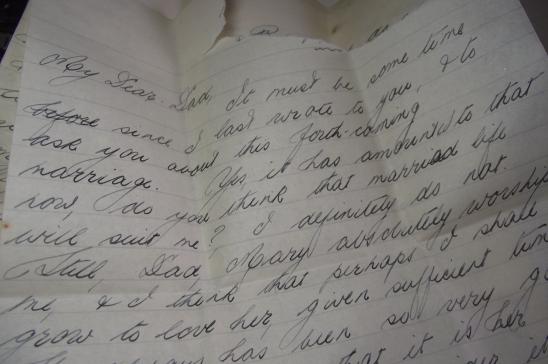 My Dear Dad, It must be some time
before since I last wrote to you, & to
ask you about this forth-coming
marriage. Yes, it has amounted to that
now, do you think that married life
will suit me? I definitely do not.
Still, Dad, Mary absolutely worships
me, & I think that perhaps I shall
grow to love her, given sufficient time
has been so very
that it is her